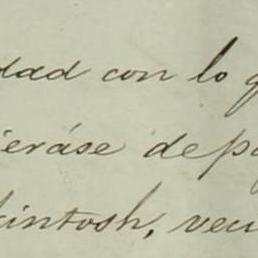 dad con lo q
ieráse dep
kintosh, vecu